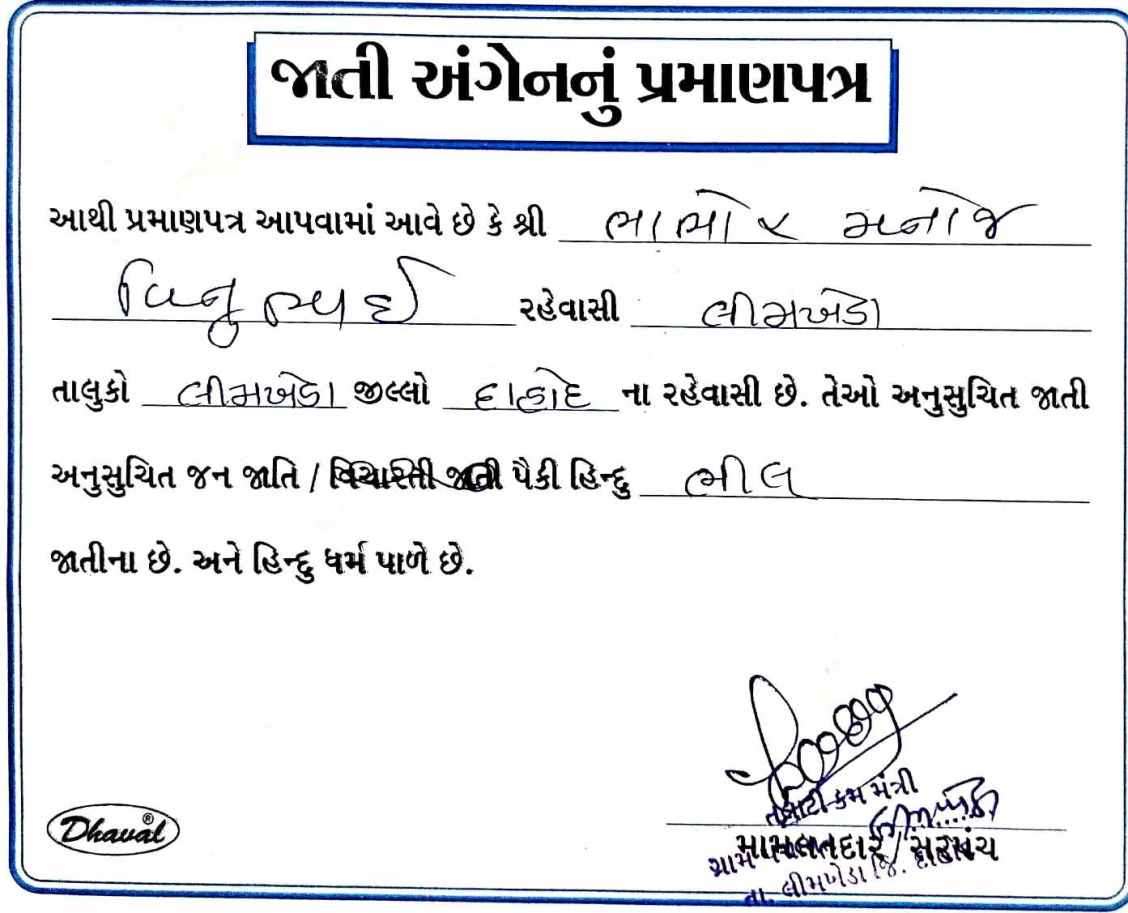 જાતી અંગેનનું પ્રમાણપત્ર
આથી પ્રમાણપત્ર આપવામાં આવે છે કે શ્રી ભાભોર મનોજ
વિનુભાઈ રહેવાસી લીમખેડા
તાલુકો લીમખેડા જીલ્લો દાહોદ ના રહેવાસી છે. તેઓ અનુસુચિત જાતી
અનુસુચિત જન જાતિ / વિચારતી જાતી પૈકી હિન્દુ ભીલ
જાતીના છે. અને હિન્દુ ધર્મ પાળે છે.
તલાટી કમ મંત્રી
મામલતદાર / સરપંચ
ગ્રામ
તા. લીમખેડા જિ. દાહોદ
Dhaval®